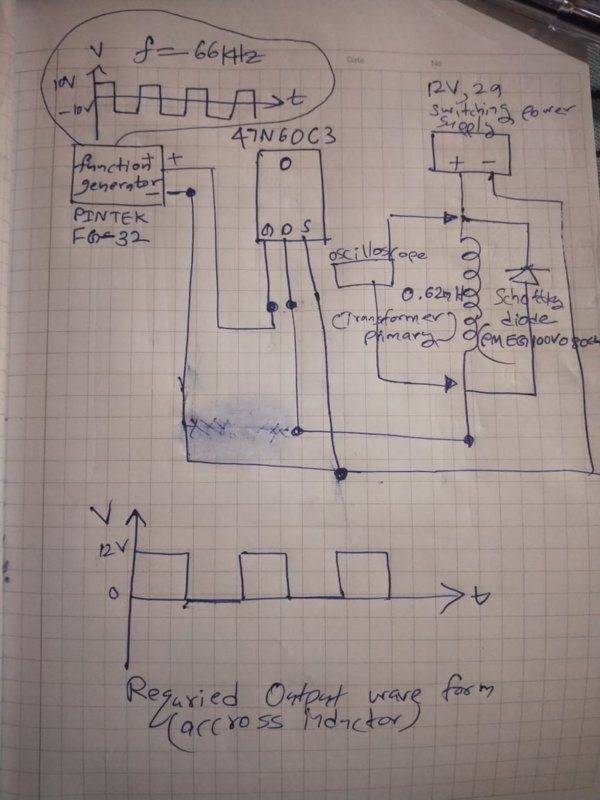 Date
No
V
f = 66KHz
10V
-10V
t
47N60C3
12V, 2a
switching power
supply
+ -
function +
generator -
+
-
PINTEK
FG-32
G D S
oscilloscope
0.62mH
(Transformer
primary)
Schottky
diode
V
12V
0
t
Requried Output wave form
(accross inductor)